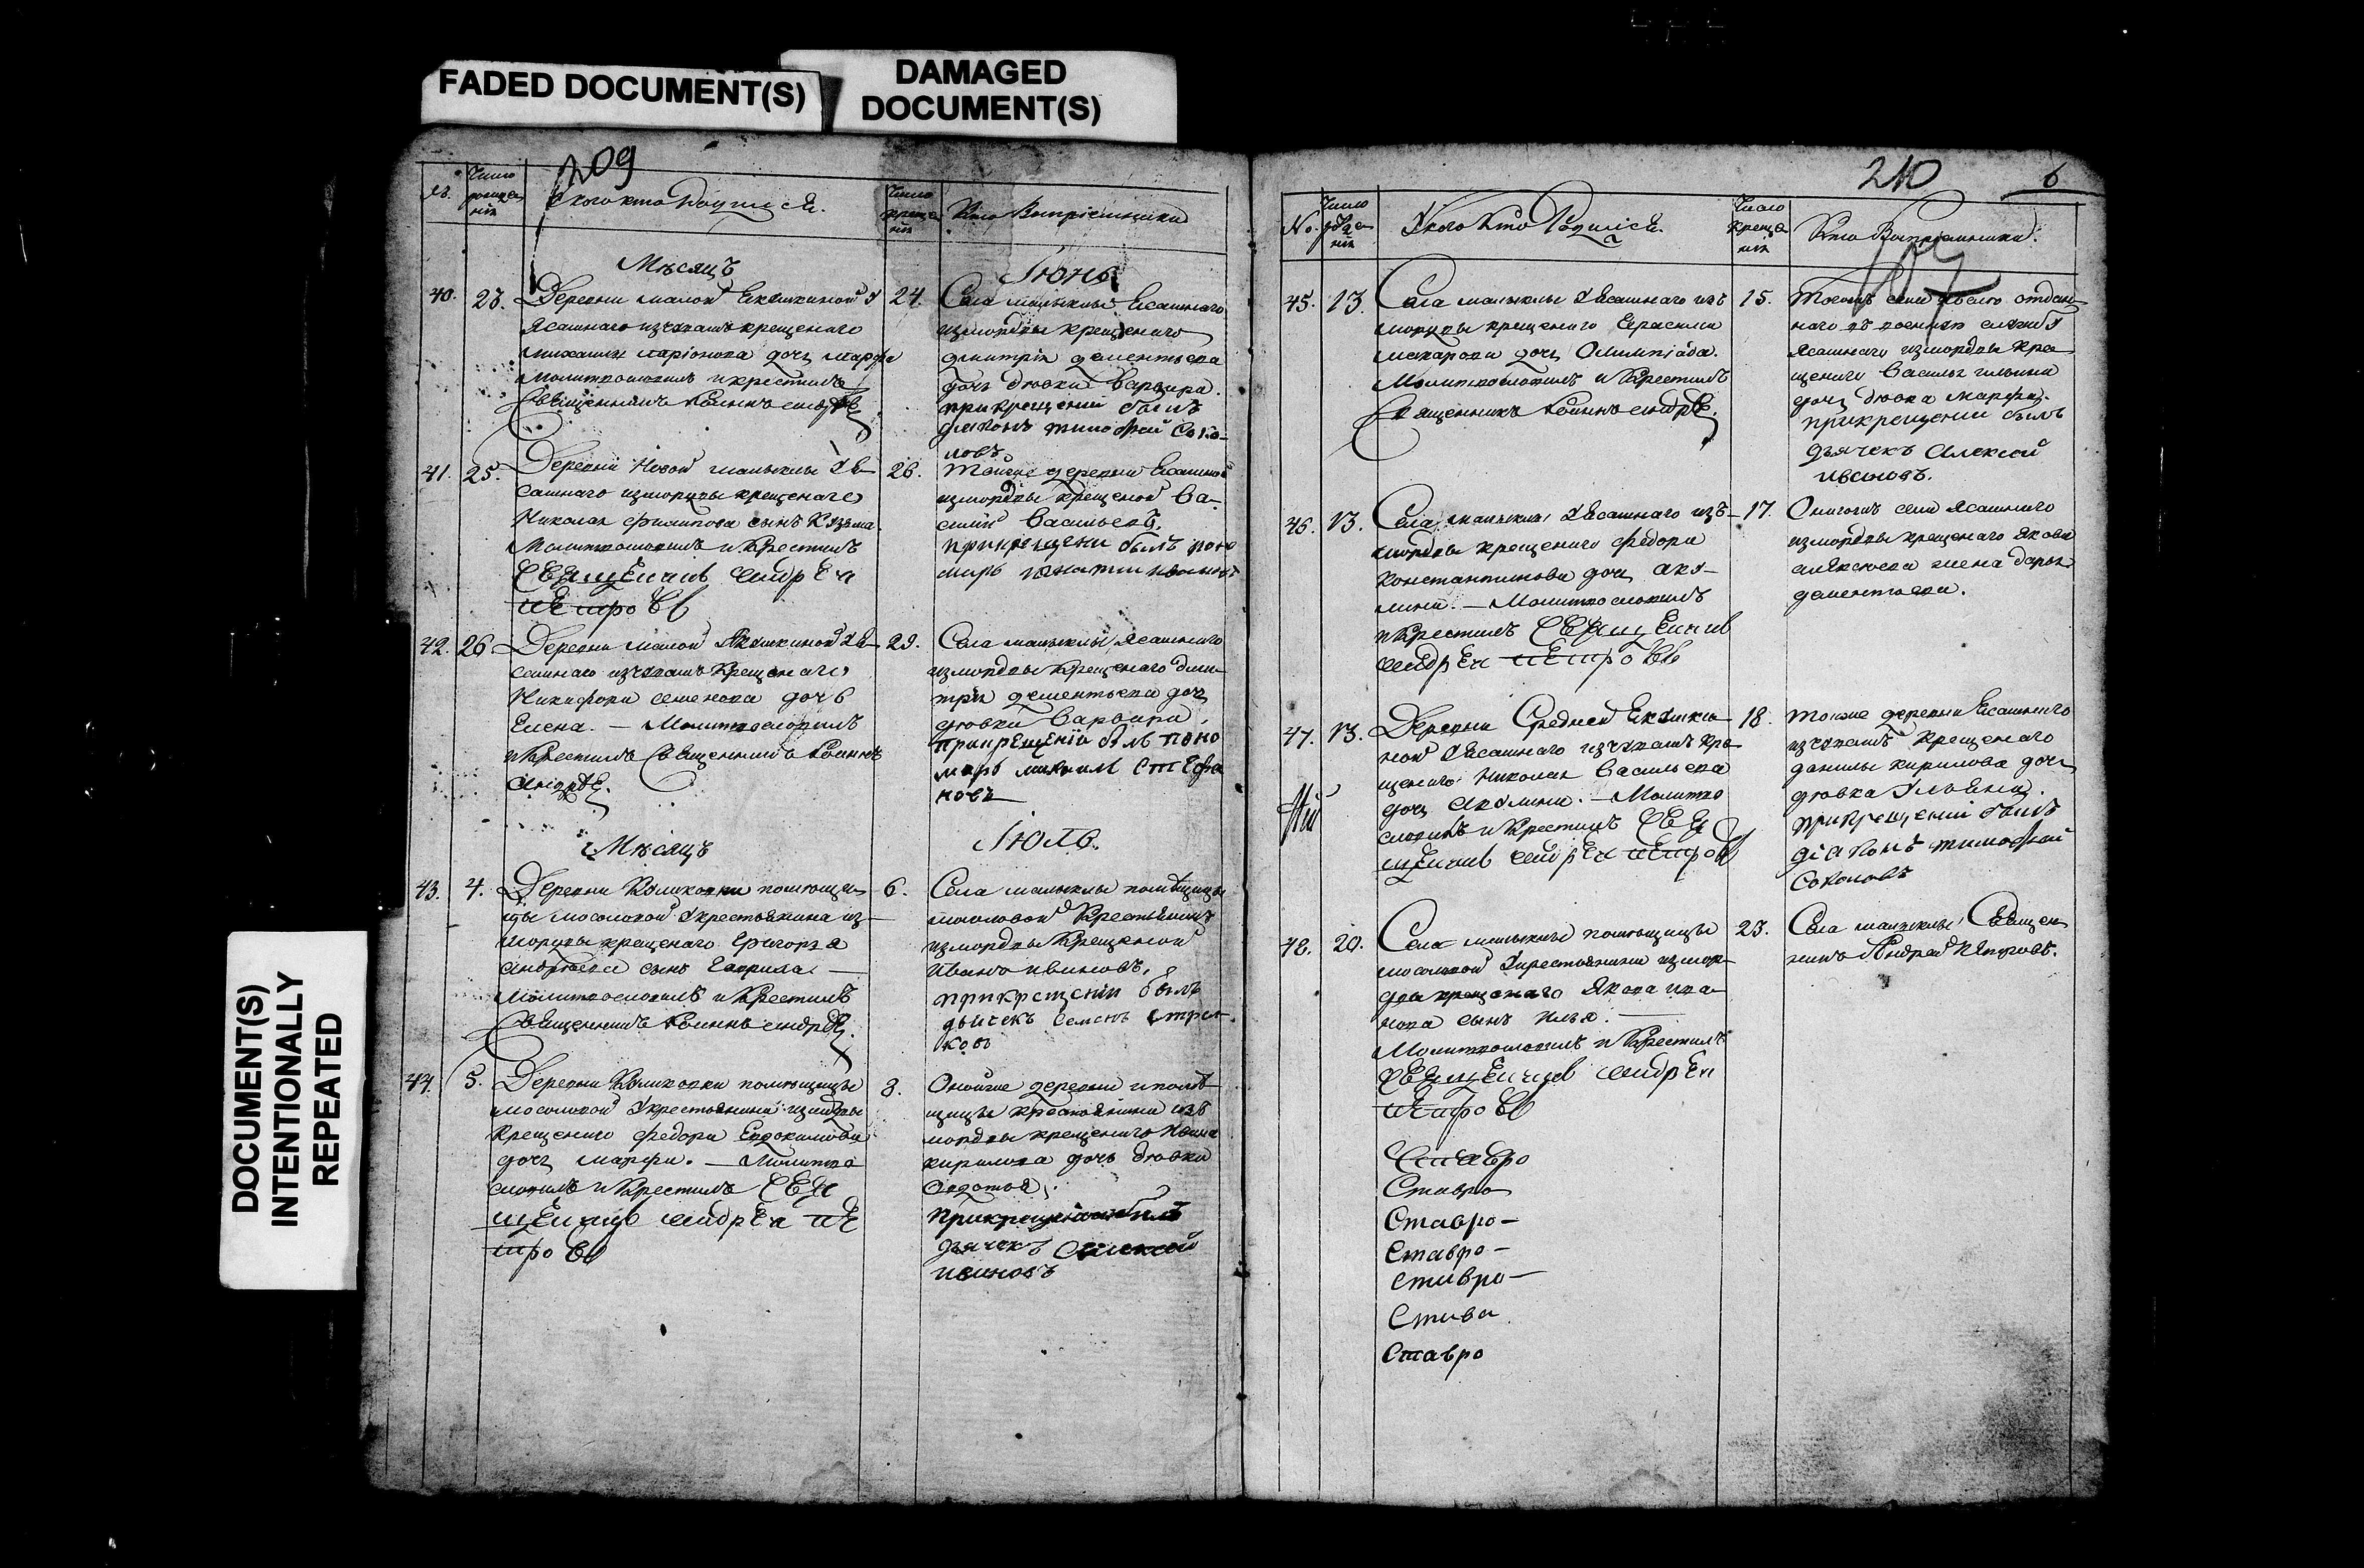 FADED DOCUMENT(S)
DAMAGED
DOCUMENT(S)
DOCUMENT(S)
INTENTIONALLY
REPEATED
209
Число
рожде
нія
У кого кто родился.
Число
креще
нія
Кто Воспріемники
Мѣсяцъ
Іюнь
40.
23.
Деревни малой Якушкиной у
ясашнаго изчувашъ крещенаго
дочь марфа
Молитвословилъ и крестилъ
Священникъ Іоаннъ андрѣе
24.
Села малыклы ясашнаго
измордвы крещенаго
дмитрія дементьева
дочь дѣвка варвара.
прикрещеніи былъ
диаконъ тимофей Соко
ловъ
41.
25.
Деревни Новой малыклы У я
сашнаго измордвы крещенаго
Николая филипова сынъ Козьма
Молитвословилъ и Крестилъ
Священникъ андрей
петровъ
26.
Тойже деревни ясашной
измордвы крещеной Ва
силій Васильевъ.
прикрещени былъ поно
марь
42.
26
Деревни малой Якушкиной У я
сашнаго изчувашъ Крещенаго
Никифора семенова дочь
Елена. — Молитвословилъ
и Крестилъ Священникъ Іоаннъ
андрѣе.
29.
Села малыклы ясашнаго
измордвы Крещенаго дми
трія дементьева дочь
дѣвка Варвара.
прикрещеніи былъ поно
марь михаилъ стефа
новъ
Мѣсяцъ
Іюль.
43.
4.
Деревни Куликовки помѣщи
цы мосоловой У крестьянина из
мордвы крещенаго Григорья
андреева сынъ Гаврила —
Молитвословилъ и Крестилъ
Священникъ Іоаннъ андрѣе.
6.
Села малыклы помѣщицы
мосоловой Крестьянинъ
измордвы Крещеной
Иванъ ивановъ.
прикрещеніи былъ
дьячекъ Семенъ Стрел
ковъ
44.
5.
Деревни Куликовки помѣщицы
мосоловой У крестьянина измордвы
Крещенаго федора Евдокимова
дочь марфа. — Молитво
словилъ и Крестилъ Свя
щенникъ андрей пе
тровъ
8.
Онойже деревни и помѣ
щицы крестьянина изъ
мордвы крещенаго
кирилова дочь дѣвка
Федотья.
Прикрещеніи былъ
дьячекъ Алексей
ивановъ
210
6
No.
Число
рожде
нія
У кого Кто Родился.
Число
креще
нія
Кто Воспріемники.
45.
13.
Села малыклы У ясашнаго изъ
мордвы крещенаго Герасима
макарова дочь Олимпіада.
Молитвословилъ и Крестилъ
Священникъ Іоаннъ андрѣе.
15.
отдан
наго въ военную службу
ясашнаго измордвы кре
щенаго Василья ильина
дочь дѣвка марфа.
прикрещении былъ
дьячекъ Алексей
ивановъ.
46.
13.
Села малыклы У ясашнаго изъ
мордвы крещенаго федора
Константинова дочь аку
лина. — Молитвословилъ
и Крестилъ Священникъ
андрей петровъ
17.
Оногожъ села ясашнаго
измордвы крещенаго якова
алексеева жена дарья
дементьева.
47.
13.
Деревни Средней Якушки
ной У ясашнаго изчувашъ кре
щенаго Николая Васильева
дочь акулина. — Молитво
словилъ и Крестилъ Свя
щенникъ андрей петровъ
18.
тоеже деревни ясашнаго
изчувашъ крещенаго
данилы кирилова дочь
дѣвка Ульяна.
прикрещении былъ
діаконъ тимофей
Соколовъ
48.
20.
Села малыклы помѣщицы
мосоловой У крестьянина измор
двы крещенаго Якова ива
нова сынъ Илья.
Молитвословилъ и Крестилъ
Священникъ андрей
петровъ
23.
Села малыклы Священ
никъ Андрей Петровъ.
Ставро
Ставро
Ставро —
Ставро —
Ставро —
Става
Ставро